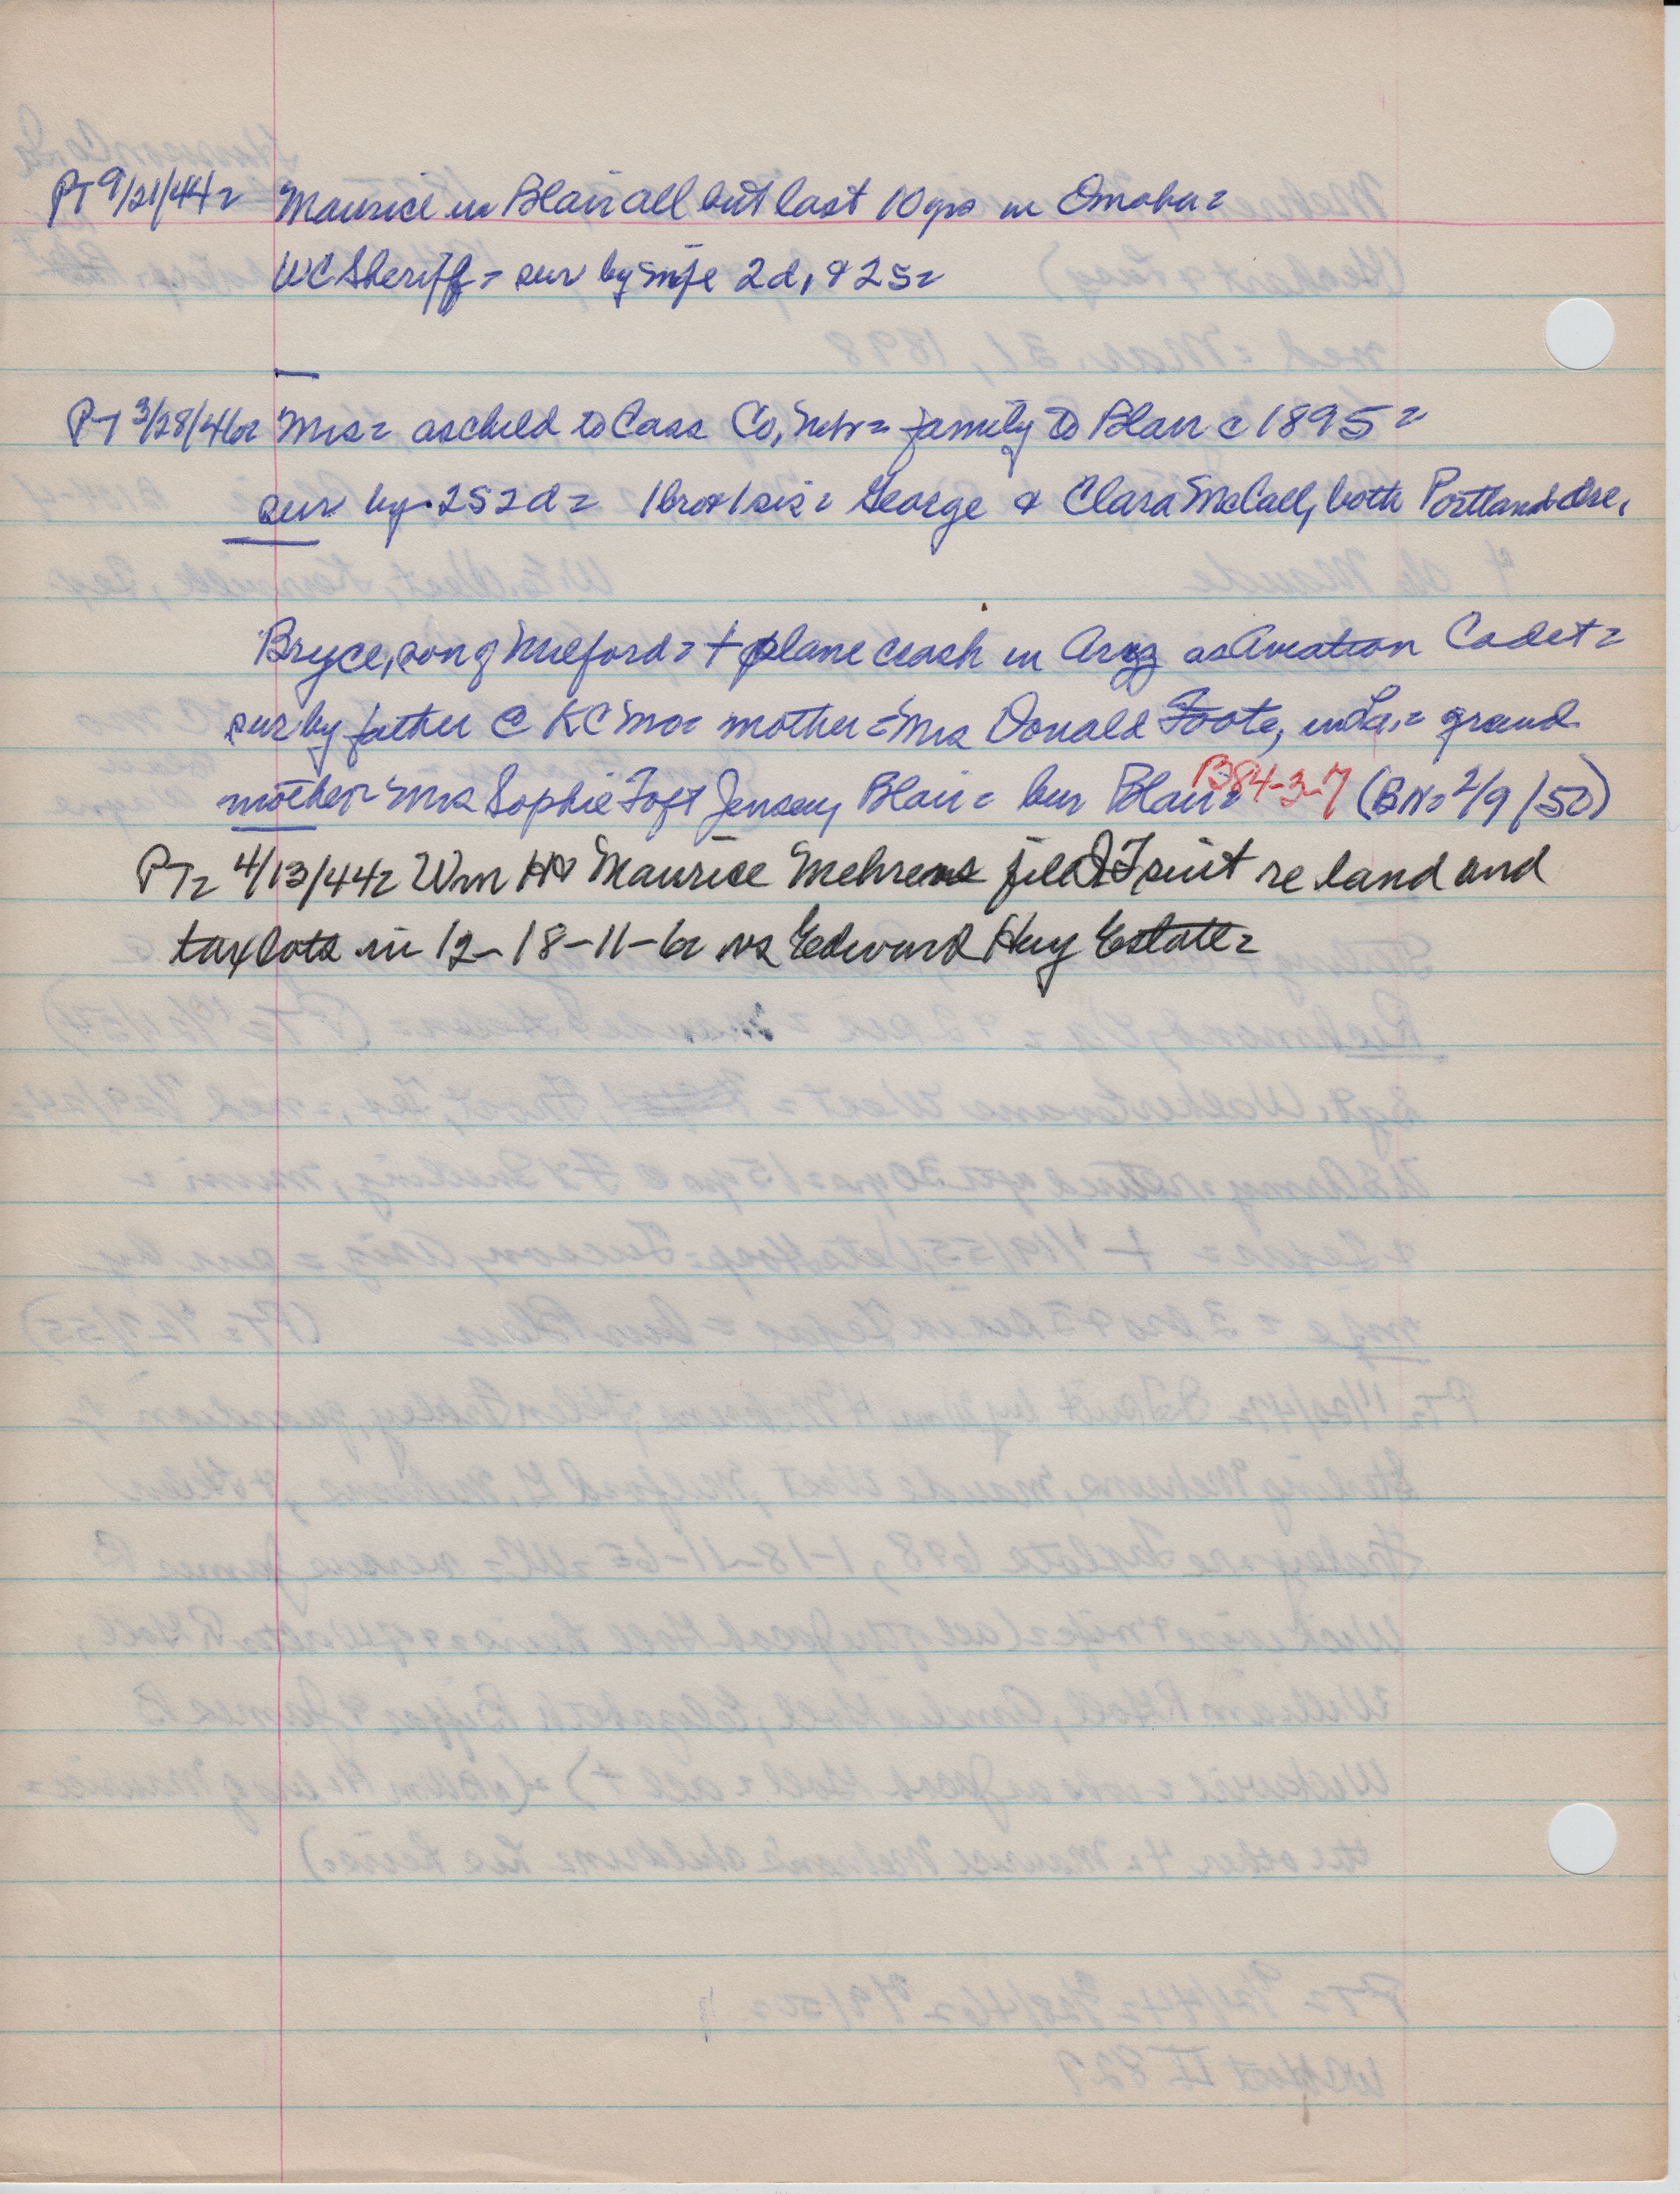 PT 9/21/44= Maurice in Blair all but last 10 yrs in Omaha=
WC Sheriff= sur by wife 2d, & 2s=
PT 3/28/46= Mrs= as child to Cass Co, Neb= family to Blair c 1895=
sur by 2s 2d= 1 bro & 1 sis= George & Clara McCall, both Portland Ore,
Bryce, son of Milford= + plane crash in Ariz as Aviation Cadet=
sur by father @ KC Mo= mother= Mrs Donald Foote, in La,= grand
mother= Mrs Sophie Toft Jensen, Blair= bur Blair= B84-3-7 (BN= 2/9/50)
PT= 4/13/44= Wm H & Maurice Mehrens filed QT suit re land and
taxlots in 12-18-11-6= vs Edward Huy Estate=